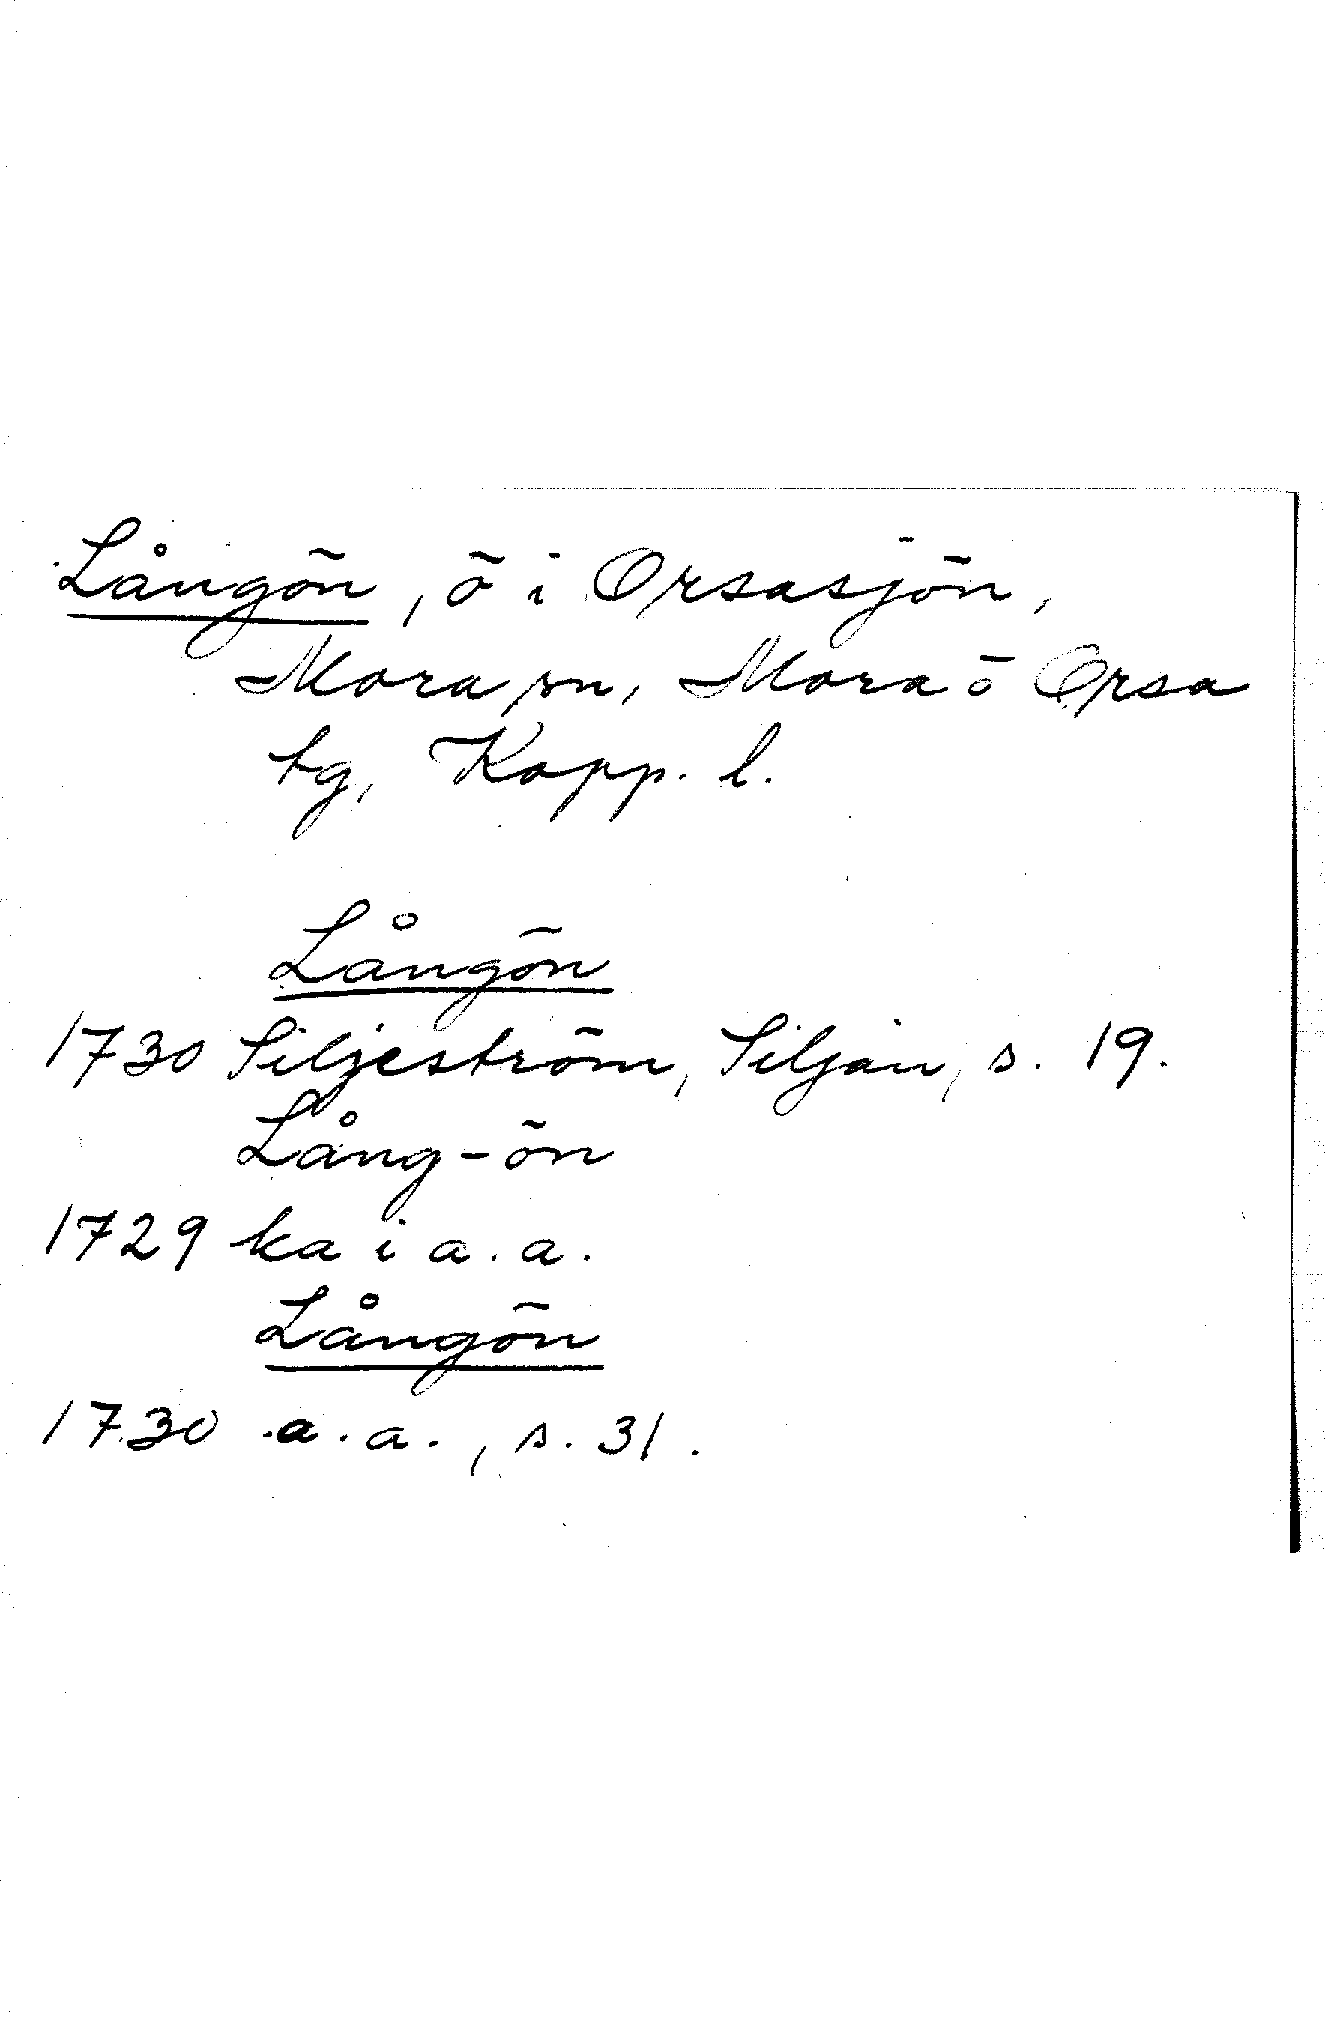 Långön, ö i Orsasjön,
Mora sn, Mora o Orsa
tg, Kopp. l.
Långön
1730 Siljeström, Siljan, s. 19.
Lång-ön
1729 ka i a.a.
Långön
1730 a.a., s. 31.